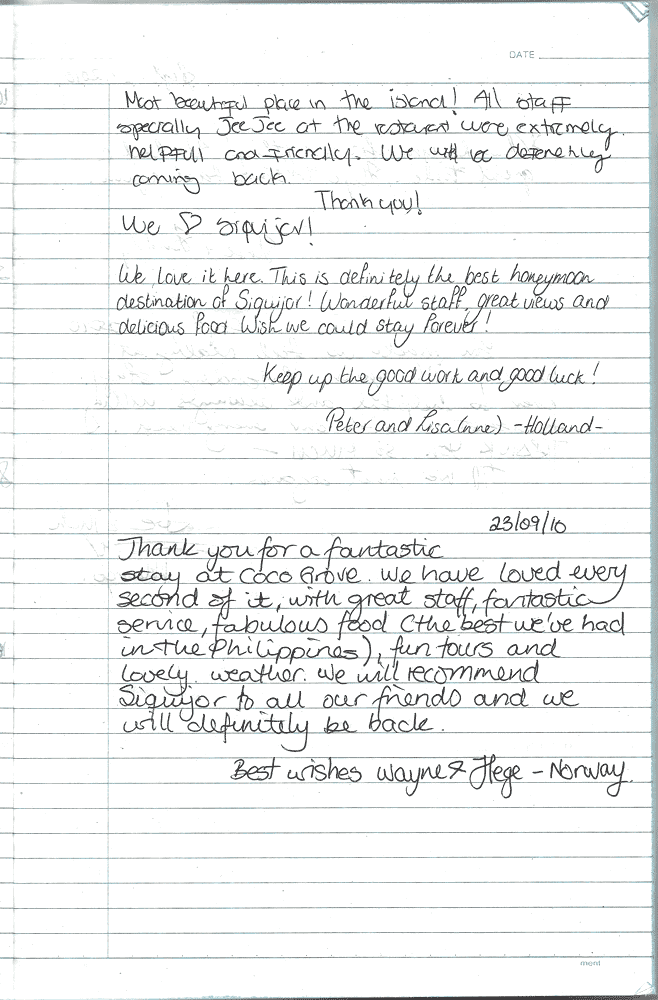 DATE
Most beautiful place in the island! All staff
specially JeeJee at the restaurant were extremely
helpfull and friendly. We will be defenetely
coming back.
Thank you!
We ♡ siquijor!
We love it here. This is definitely the best honeymoon
destination of Siquijor! Wonderful staff, great views and
delicious food Wish we could stay forever!
Keep up the good work and good luck!
Peter and Lisa(nne) -Holland-
23/09/10
Thank you for a fantastic
stay at Coco Grove. We have loved every
second of it, with great staff, fantastic
service, fabulous food (the best we've had
in the Philippines), fun tours and
lovely weather. We will recommend
Siquijor to all our friends and we
will definitely be back.
Best wishes Wayne & Hege - Norway.